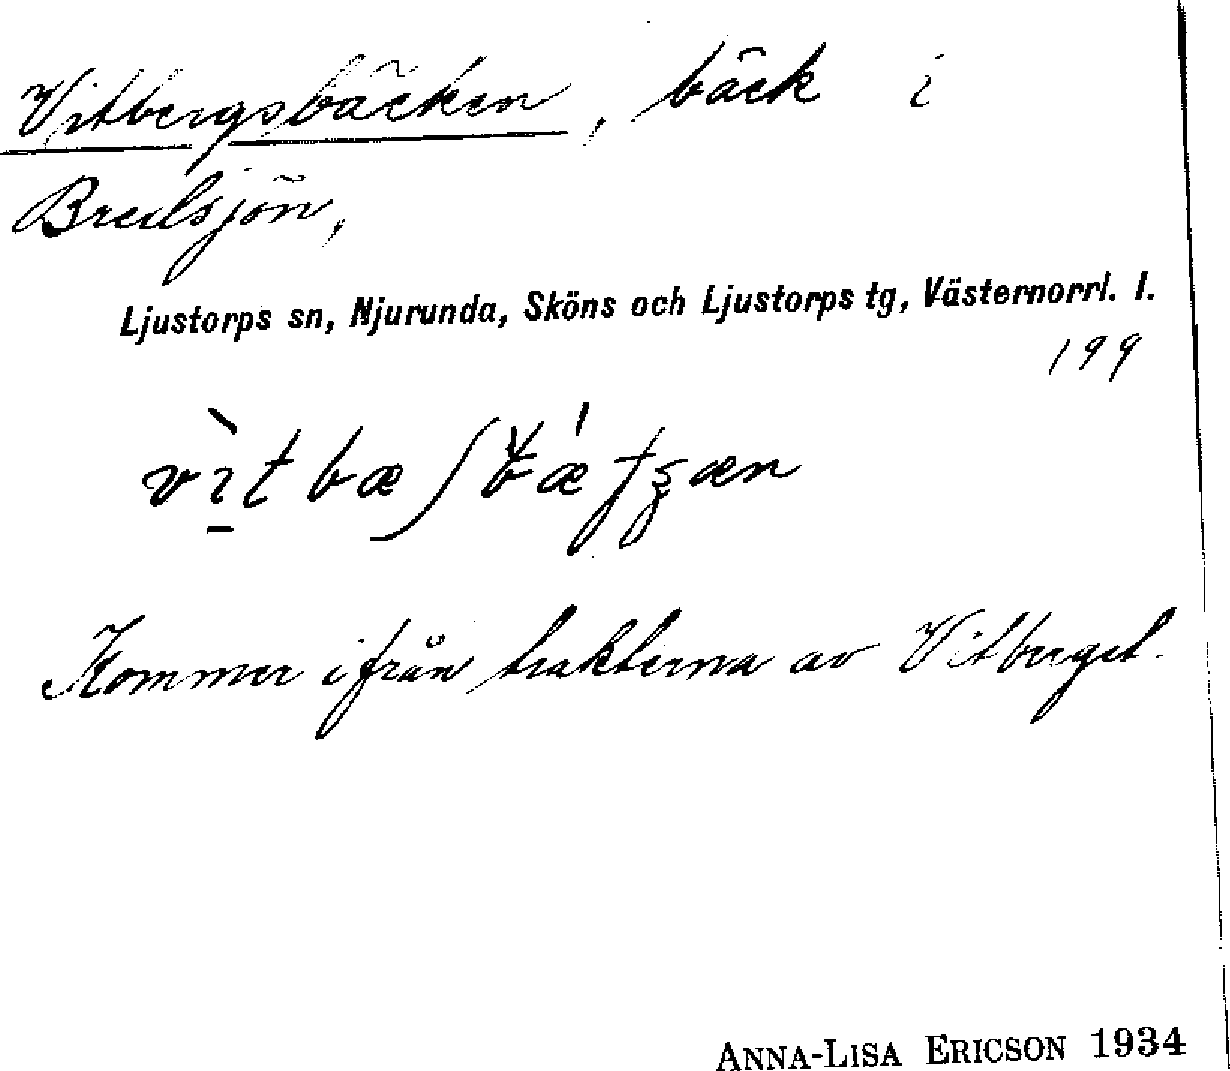 Vitbergsbäcken, bäck i
Bredsjön,
Ljustorps sn, Njurunda, Sköns och Ljustorps tg, Västernorrl. l.
199
Kommer ifrån trakterna av Vitberget.
ANNA-LISA ERICSON 1934